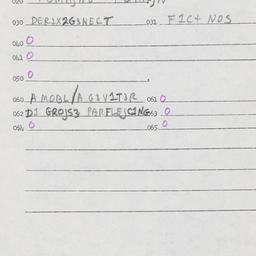 030 DERIX2G3NECT 031 FICT NOS
040 O
041 O
050 O
060 A MOBL/A G3V1T3R 061 O
062 DJ GROJS3 PARFLEJCING 063 O
064 O 065 O